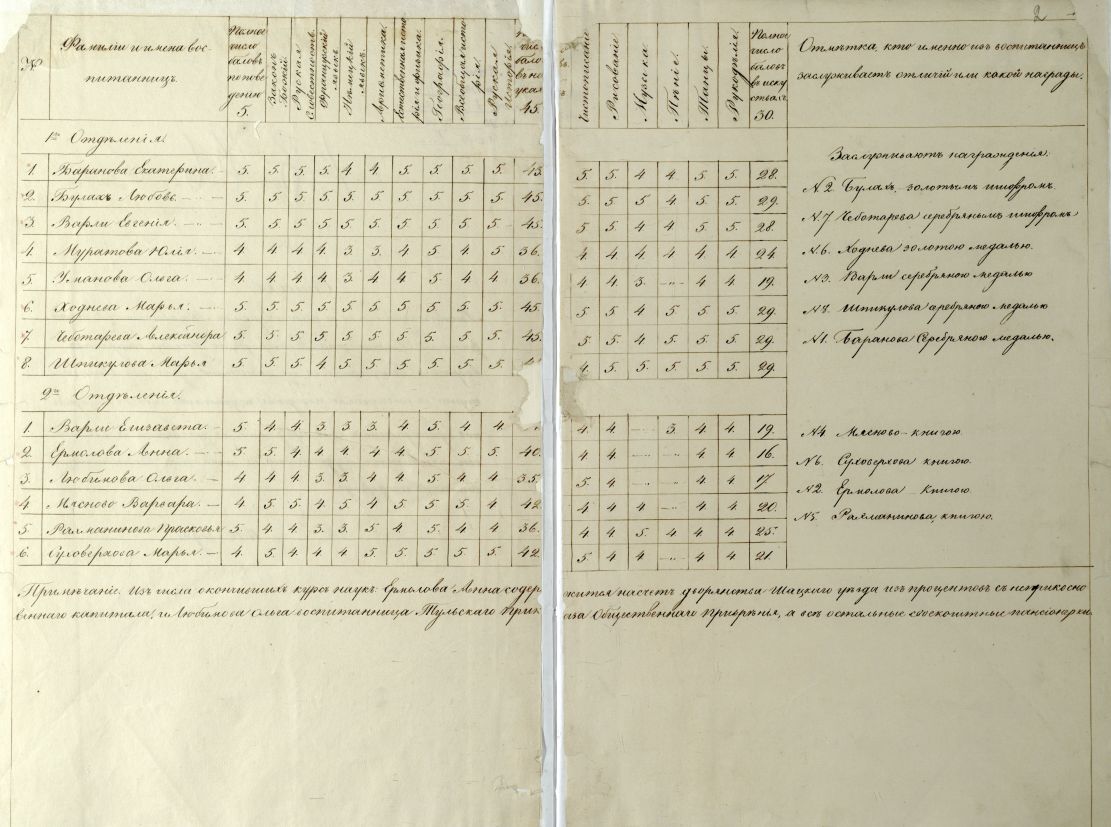 2
№ Фамилiи и имена вос-
питанницъ.
Полное число баловъ по поведенiю 5.
Законъ Божiй
Руская Словестность.
Французскiй языкъ.
Нѣмецкiй языкъ.
Арифметика.
Естественная исторiя и физика.
Географiя.
Всеобщая исторiя.
Руская Исторiя.
45.
Чистописанiе
Рисованiе
Музыка
Пѣнiе.
Танцы.
Рукодѣлiя.
Полное число баловъ въ искуствахъ 30.
Отмѣтка, кто именно изъ воспитанницъ
заслуживаетъ отличiй или какой награды.
1го Отдѣленiя.
1. Баранова Екатерина. 5. 5. 5. 5. 4 4 5. 5. 5. 5. 43. 5. 5. 4 4 5. 5. 28.
2. Булахъ Любовь. 5. 5. 5. 5. 5. 5. 5. 5. 5. 5. 45. 5. 5. 5 4 5. 5. 29.
3. Варли Евгенiя. 5. 5. 5. 5. 5. 5. 5. 5. 5. 5. 45. 5. 5 4 4 5. 5. 28.
4. Муратова Юлiя. 4 4 4 4 3 3 4 5 4 5 36. 4 4 4 4 4 4 24.
5. Ольга. 4 4 4 4 3 4 4 5 4 4 36. 4 4 3 4 4 19.
6. Ходнева Марья. 5. 5. 5. 5. 5. 5. 5. 5. 5. 5. 45. 5. 5 4 5. 5. 5. 29.
7. Чеботарева Александра 5. 5. 5 5 5. 5. 5. 5. 5. 5. 45. 5. 5. 4 5. 5. 5. 29.
8. Шпикулова Марья 5. 5. 5. 4 5. 5. 5. 5. 5. 5. 4. 5. 5. 5. 5. 5. 29.
Заслуживаютъ награжденiя:
№ 2. Булахъ золотымъ шифромъ.
№ 7 Чеботарева серебрянымъ шифромъ
№ 6. Ходнева золотою медалью.
№ 3. Варли серебряною медалью
№ 8. Шпикулова серебряною медалью
№ 1. Баранова Серебряною медалью.
2го Отдѣленiя.
1. Варли Елизавета. 5. 4 4 3 3 3. 4 5. 4 4 4. 4 3. 4 4. 19.
2. Ермолова Анна. 5. 5. 4 4 4 4. 4 5. 5. 5. 40. 4 4 4 4 16.
3. Любимова Ольга. 4 4 4 3 3 4 4 5 4 4 35. 5 4 4 4 17
4 Мясново Варвара. 4. 5 5. 4. 5 4 5. 5. 5. 4 42. 4 4 4 4 4 20.
5 Рахманинова Прасковья 5. 4 4 3. 3. 5 4. 5. 4 4 36. 4 4 5. 4 4 4 25.
6. Суховерхова Марья. 4. 5. 4 4 4 5. 5. 5. 5. 5. 42. 5 4 4 4 4 21
№ 4 Мясново книгою
№ 6. Суховерхова книгою.
№ 2. Ермолова Книгою.
№ 5. Рахманинова, книгою.
Примѣчанiе. Изъ числа окончившихъ курсъ наукъ: Ермолова Анна содержится насчетъ дворянства Шацкаго уѣзда изъ процентовъ съ неприкосно
веннаго капитала, и Любимова Ольга воспитанница Тульскаго Приказа Общественнаго Призрѣнiя, а всѣ остальные своекоштные пансiонерки.